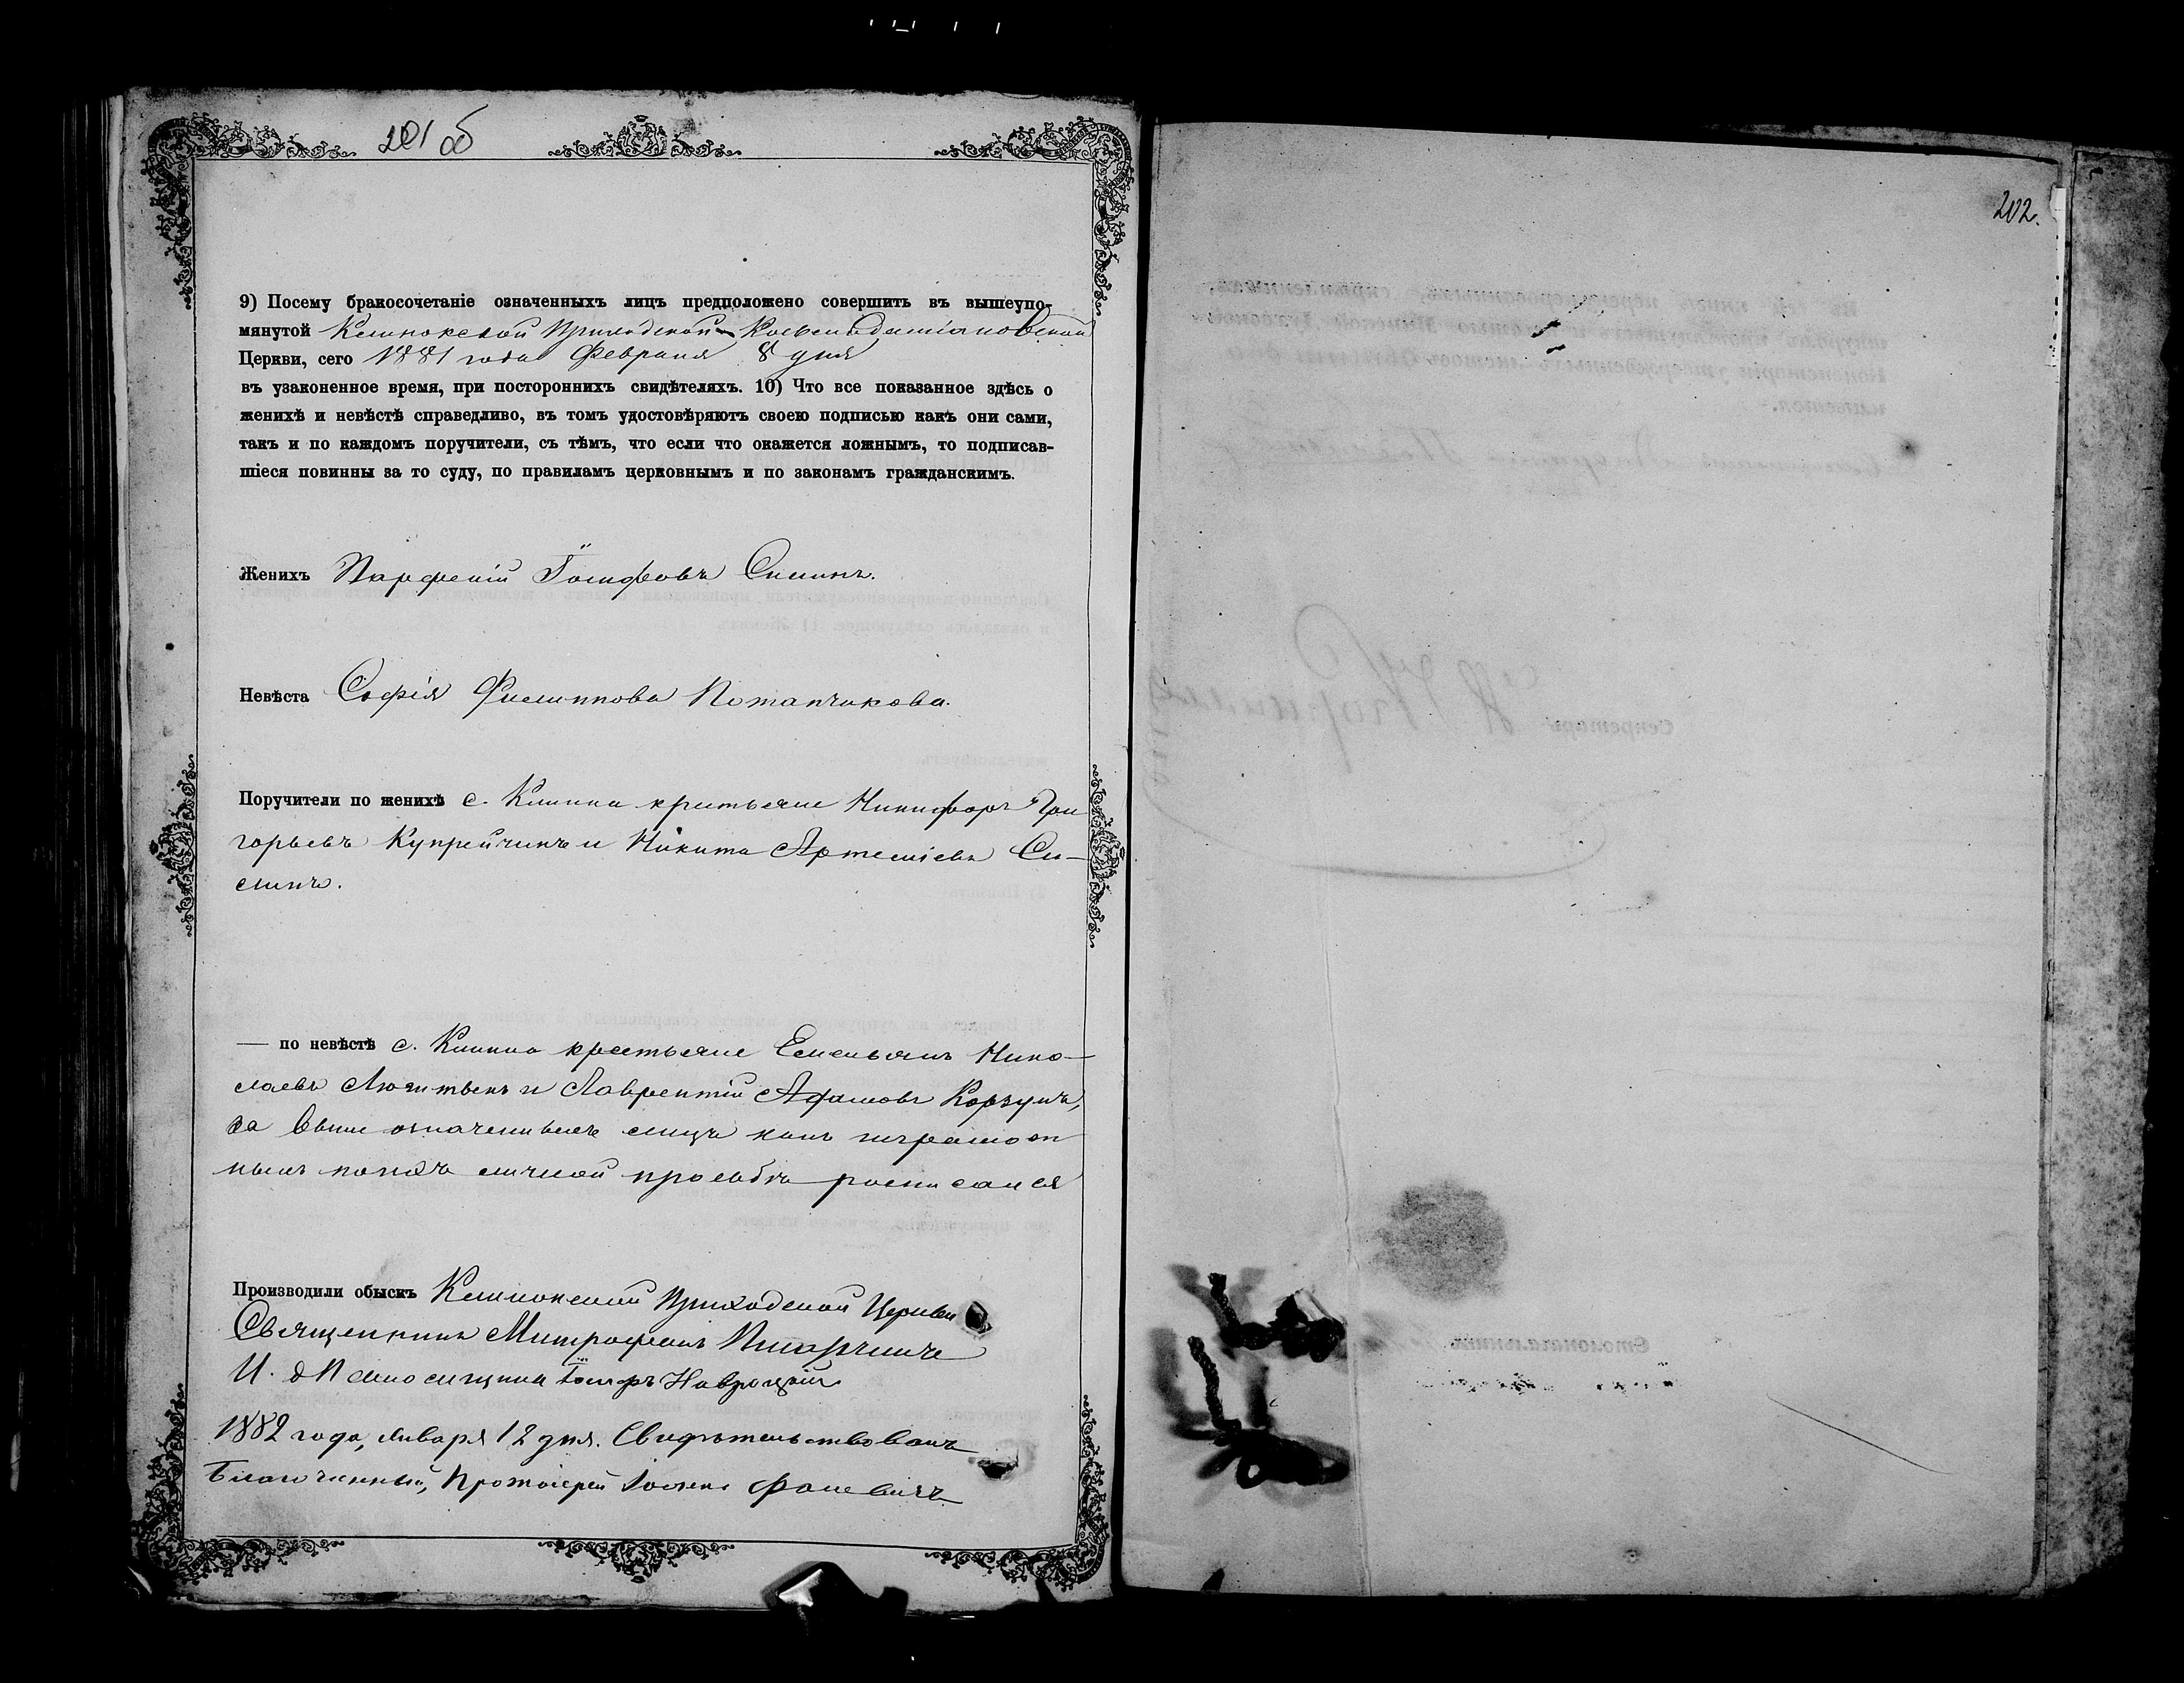 201 об
9) Посему бракосочетаніе означенныхъ лицъ предположено совершить въ вышеупо-
мянутой Клинокской Приходской Косьмодаміановской
Церкви, сего 1881 года Февраля 8 дня
въ узаконенное время, при постороннихъ свидѣтеляхъ. 10) Что все показанное здѣсь о
женихѣ и невѣстѣ справедливо, въ томъ удостовѣряютъ своею подписью какъ они сами,
такъ и по каждомъ поручители, съ тѣмъ, что если что окажется ложнымъ, то подписав-
шіеся повинны за то суду, по правиламъ церковнымъ и по законамъ гражданскимъ.
Женихъ Парфеній Іосифовъ Симинъ.
Невѣста Софія Филиппова Потапчикова.
Поручители по женихѣ с. Клинка крестьяне Никифоръ Гри
горьевъ Купрейчикъ и Никита Артеміевъ Си-
минъ.
— по невѣстѣ с. Клинка крестьяне Емельянъ Нико-
лаевъ и Лаврентій Адамовъ Корзунъ,
за выше означенныхъ лицъ какъ неграмот
ныхъ по ихъ личной просьбѣ росписался
Производили обыскъ Клинокской Приходской Церкви
Священникъ Митрофанъ
И. д. Псаломщика Іосифъ Навроцкій
1882 года, Января 12 дня. Свидѣтельствовалъ
Благочинный, Протоіерей
202.